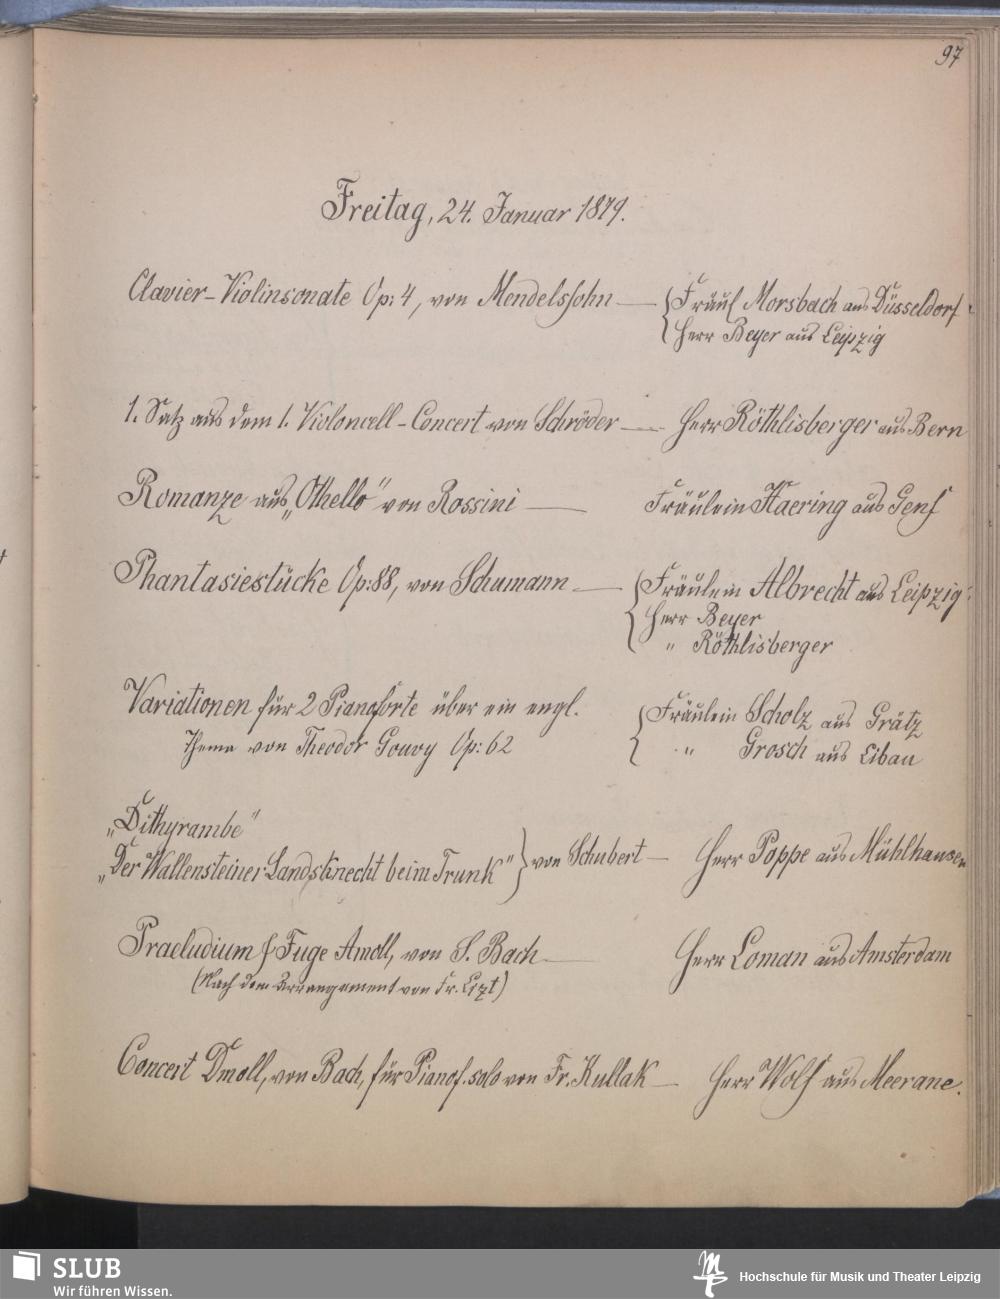 97
Freitag, 24. Januar 1879.
Clavier-Violinsonate Op: 4, von Mendelssohn — Fräul Morsbach aus Düsseldorf
Herr Beyer aus Leipzig
1. Satz aus dem 1. Violoncell-Concert von Schröder — Herr Röthlisberger aus Bern
Romanze aus „Othello" von Rossini — Fräulein Haering aus Genf
Phantasiestücke Op: 88, von Schumann — Fräulein Albrecht aus Leipzig
Herr Beyer
" Röthlisberger
Variationen für 2 Pianoforte über ein engl. Fräulein Scholz aus Grätz
Thema von Theodor Gouvy Op: 62 " Grosch aus Libau
„Dithyrambe"
„Der Wallensteiner Landsknecht beim Trunk" } von Schubert — Herr Poppe aus Mühlhausen
Praeludium & Fuge Amoll, von S. Bach — Herr Loman aus Amsterdam
(Nach dem Arrangement von Fr. Lizt)
Concert Dmoll, von Bach, für Pianof. solo von Fr. Kullak — Herr Wolf aus Meerane.
SLUB
Wir führen Wissen.
Hochschule für Musik und Theater Leipzig